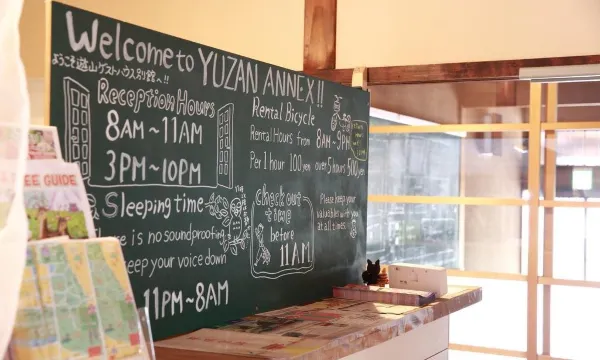 Welcome to YUZAN ANNEX!!
ようこそ遊山ゲストハウス別館へ!!
Reception Hours
8AM~11AM
3PM~10PM
Sleeping time
There is no soundproofing
keep your voice down
11PM~8AM
Rental Bicycle
Rental Hours from 8AM~9PM
Per 1 hour 100yen over 5hours 500yen
Check out
time
before
11AM
Please keep your
valuables with you
at all times
EE GUIDE